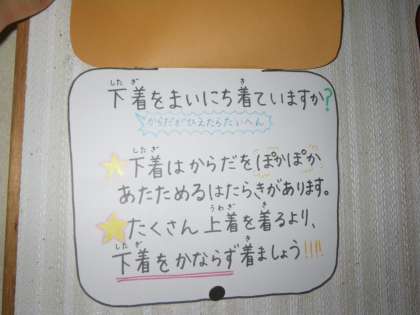 下着をまいにち着ていますか?
からだがひえたらたいへん
下着はからだをぽかぽか
あたためるはたらきがあります。
たくさん上着を着るより、
下着をかならず着ましょう!!!!